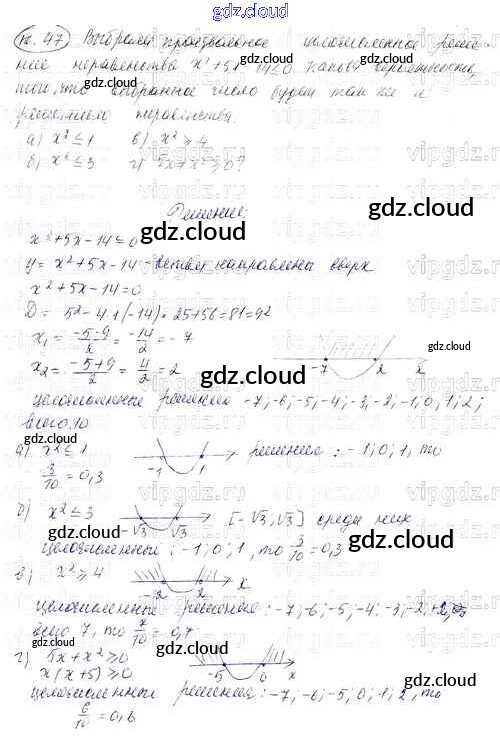 gdz.cloud
п. 47) Выбрали произвольное целочисленное реше-
ние неравенства x²+5x-14≤0. Какова вероятность
того, что выбранное число будет так же и
решением неравенства.
а) x²≤1 в) x²≥4
б) x²≤3 г) 5x+x²≥0?
gdz.cloud
Решение:
gdz.cloud
x²+5x-14≤0
y= x²+5x-14 - ветви направлены вверх
x²+5x-14=0
D= 5²-4·1(-14)=25+56=81=9²
gdz.cloud
x₁= -5-9/2 = -14/2 = -7
x₂= -5+9/2 = 4/2 = 2
-7 2 x
gdz.cloud
gdz.cloud
целочисленные решения -7;-6;-5;-4;-3;-2;-1;0;1;2;
всего:10
а) x²≤1 -1 1 решения: -1;0;1, то
3/10=0,3
gdz.cloud
б) x²≤3 -√3 √3 [-√3;√3] среди них
целочисленный: -1;0;1, то 3/10=0,3
gdz.cloud
в) x²≥4 -2 2 x
целочисленные решения: -7;-6;-5;-4;-3;-2;
всего 7, то 7/10=0,7
gdz.cloud
г) 5x+x²≥0
x(x+5)≥0 -5 0 x
целочисленный решения: -7;-6;-5;0;1;2, то
6/10=0,6
gdz.cloud